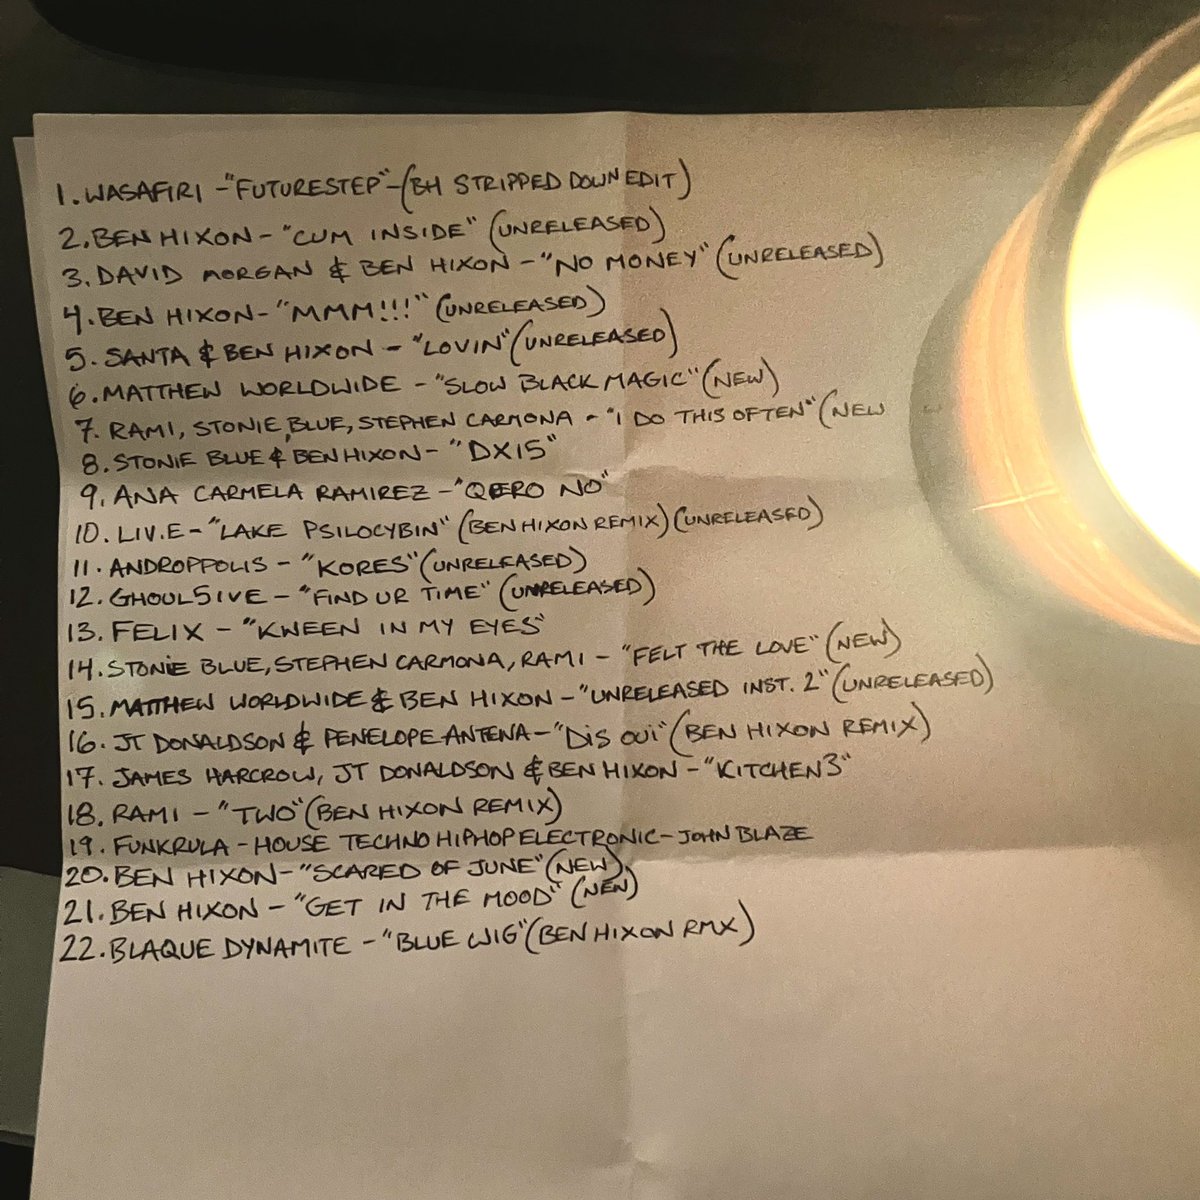 1. WASAFIRI - "FUTURESTEP" - (BH STRIPPED DOWN EDIT)
2. BEN HIXON - "CUM INSIDE" (UNRELEASED)
3. DAVID MORGAN & BEN HIXON - "NO MONEY" (UNRELEASED)
4. BEN HIXON - "MMM!!!" (UNRELEASED)
5. SANTA & BEN HIXON - "LOVIN" (UNRELEASED)
6. MATTHEW WORLDWIDE - "SLOW BLACK MAGIC" (NEW)
7. RAMI, STONIE BLUE, STEPHEN CARMONA - "I DO THIS OFTEN" (NEW
8. STONIE BLUE & BEN HIXON - "DX15"
9. ANA CARMELA RAMIREZ - "QERO NO"
10. LIV.E - "LAKE PSILOCYBIN" (BEN HIXON REMIX) (UNRELEASED)
11. ANDROPPOLIS - "KORES" (UNRELEASED)
12. GHOUL5IVE - "FIND UR TIME" (UNRELEASED)
13. FELIX - "KWEEN IN MY EYES"
14. STONIE BLUE, STEPHEN CARMONA, RAMI - "FELT THE LOVE" (NEW)
15. MATTHEW WORLDWIDE & BEN HIXON - "UNRELEASED INST. 2" (UNRELEASED)
16. JT DONALDSON & PENELOPE ANTENA - "DIS OUI" (BEN HIXON REMIX)
17. JAMES HARCROW, JT DONALDSON & BEN HIXON - "KITCHEN3"
18. RAMI - "TWO" (BEN HIXON REMIX)
19. FUNKRULA - HOUSE TECHNO HIPHOP ELECTRONIC - JOHN BLAZE
20. BEN HIXON - "SCARED OF JUNE" (NEW)
21. BEN HIXON - "GET IN THE MOOD" (NEW)
22. BLAQUE DYNAMITE - "BLUE WIG" (BEN HIXON RMX)